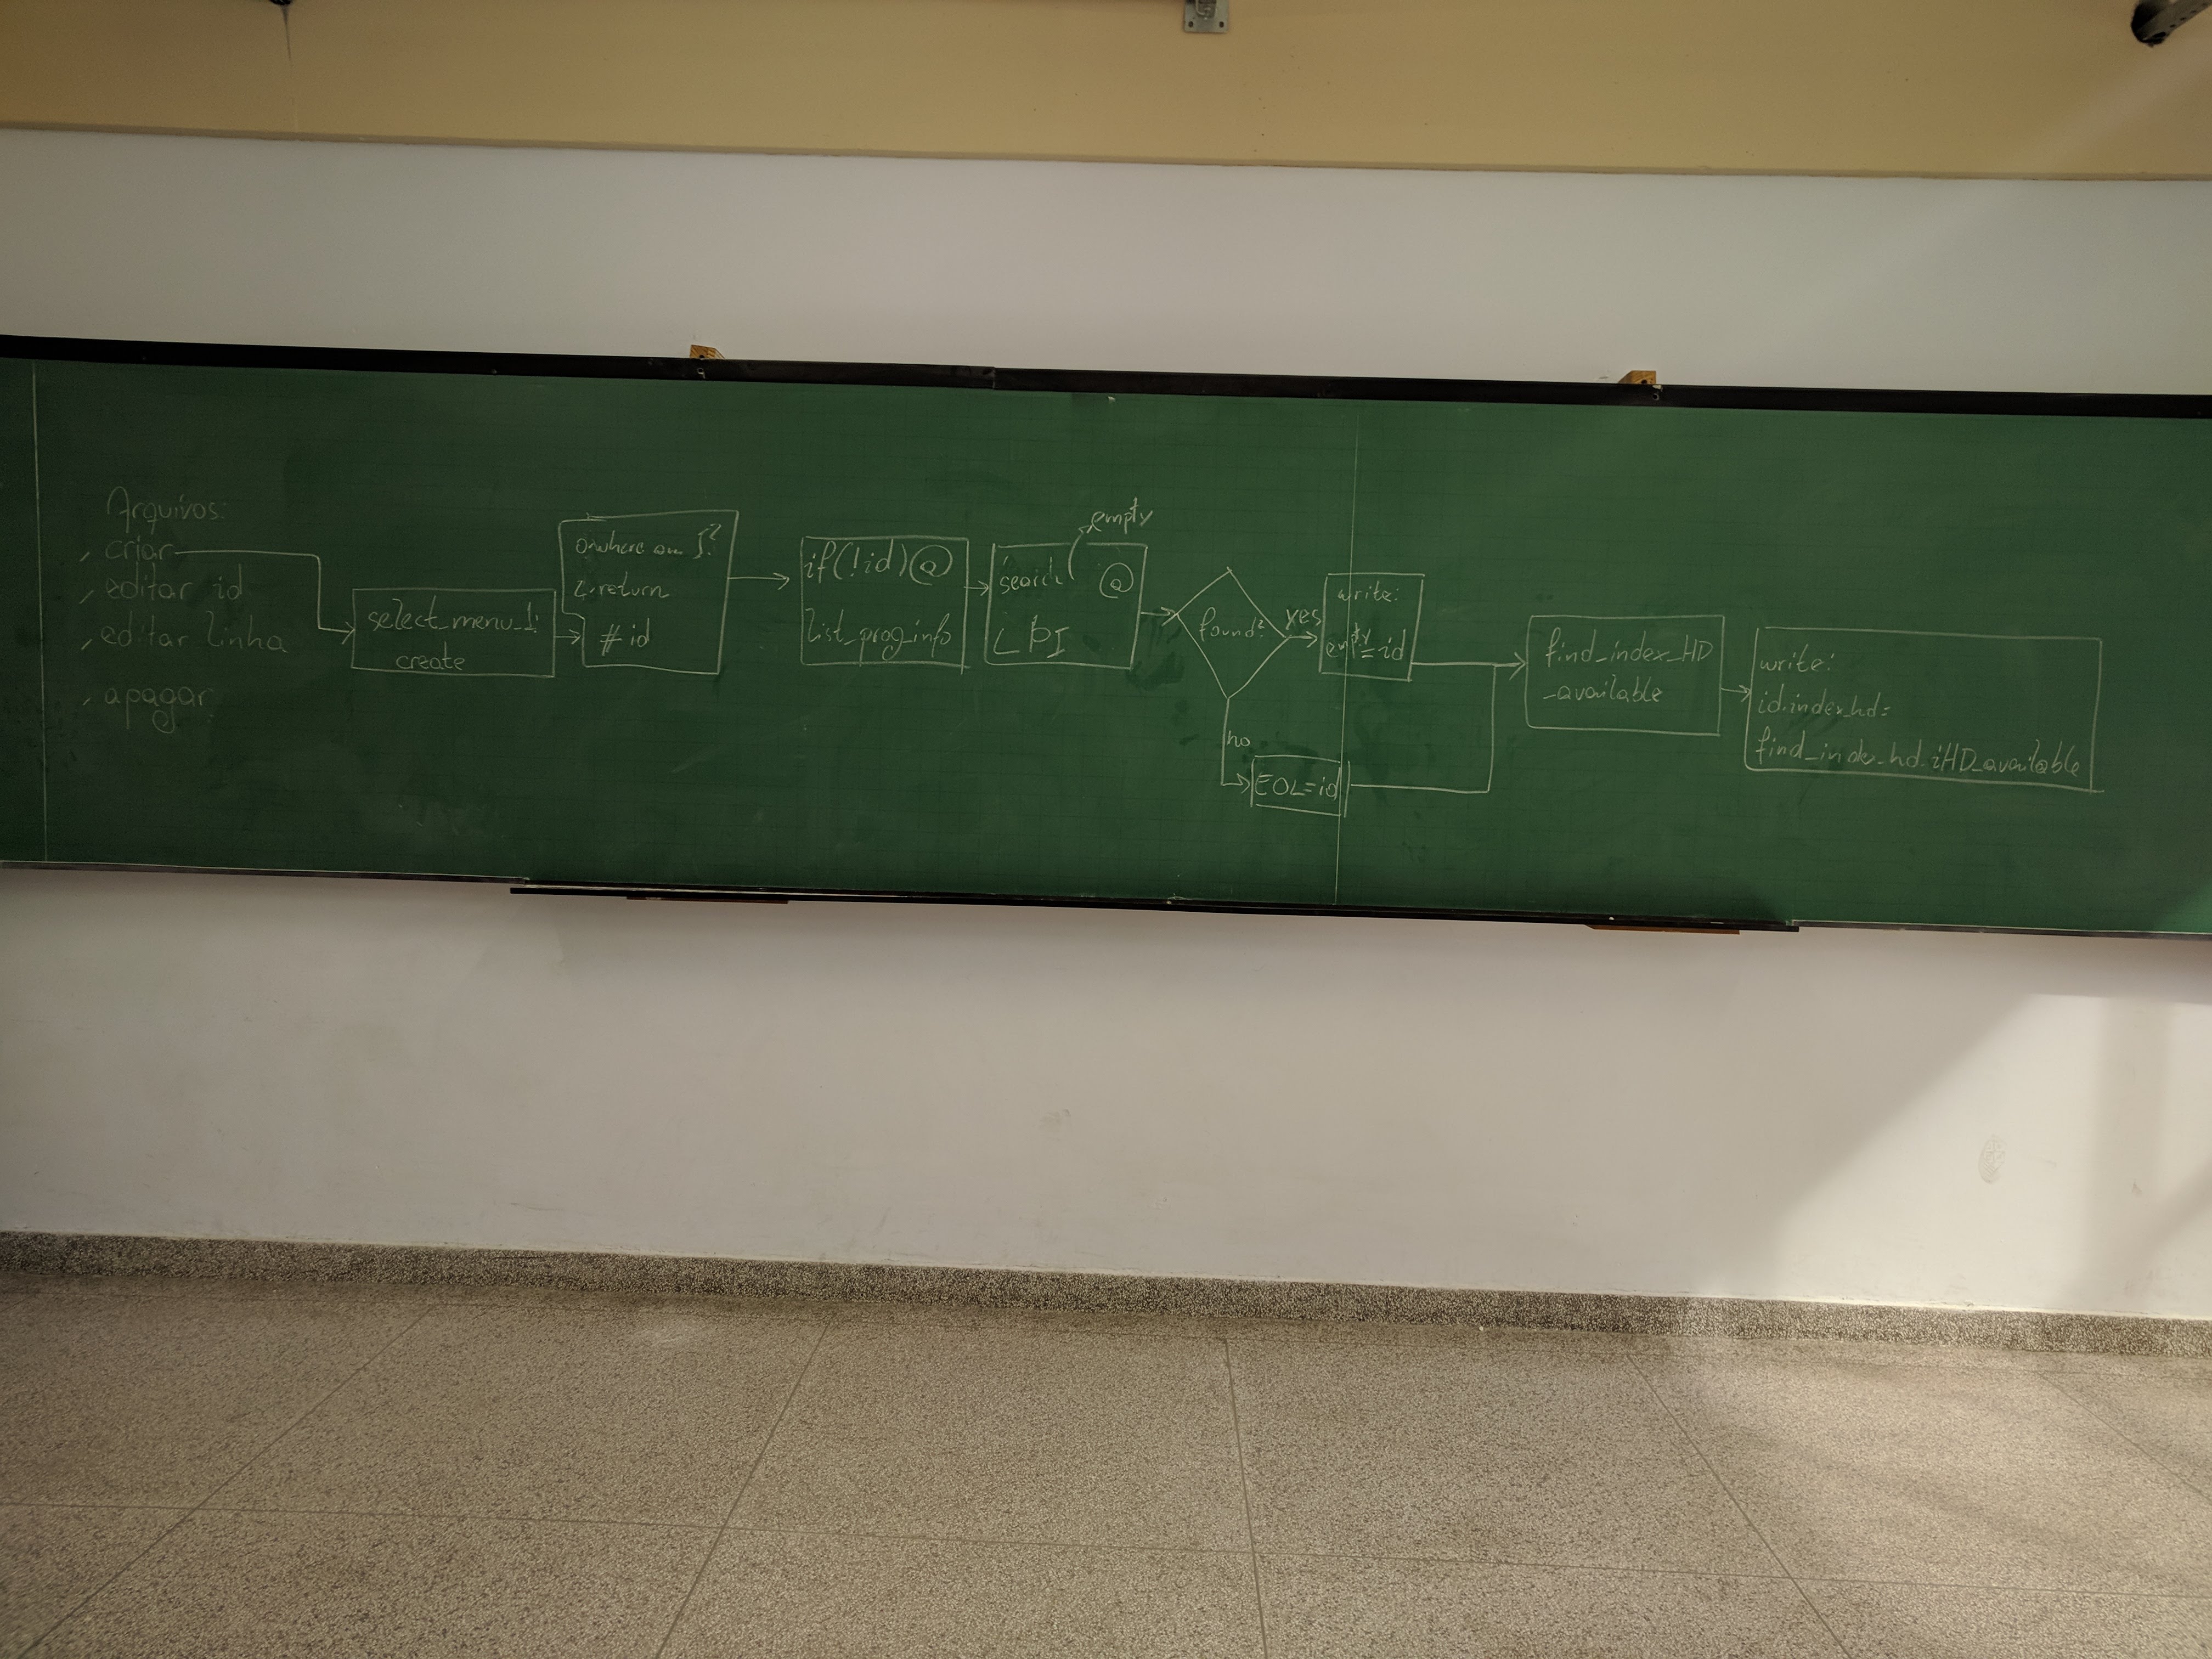 Arquivos:
, criar
, editar id
, editar linha
, apagar
select_menu_1:
create
where
return
# id
if(!id) @
list_prog_info
empty
search @
LPI
found?
yes
no
write:
empty=id
EOL=id
find_index_HD
_available
write:
id.index_hd=
find_index_hd.iHD_available